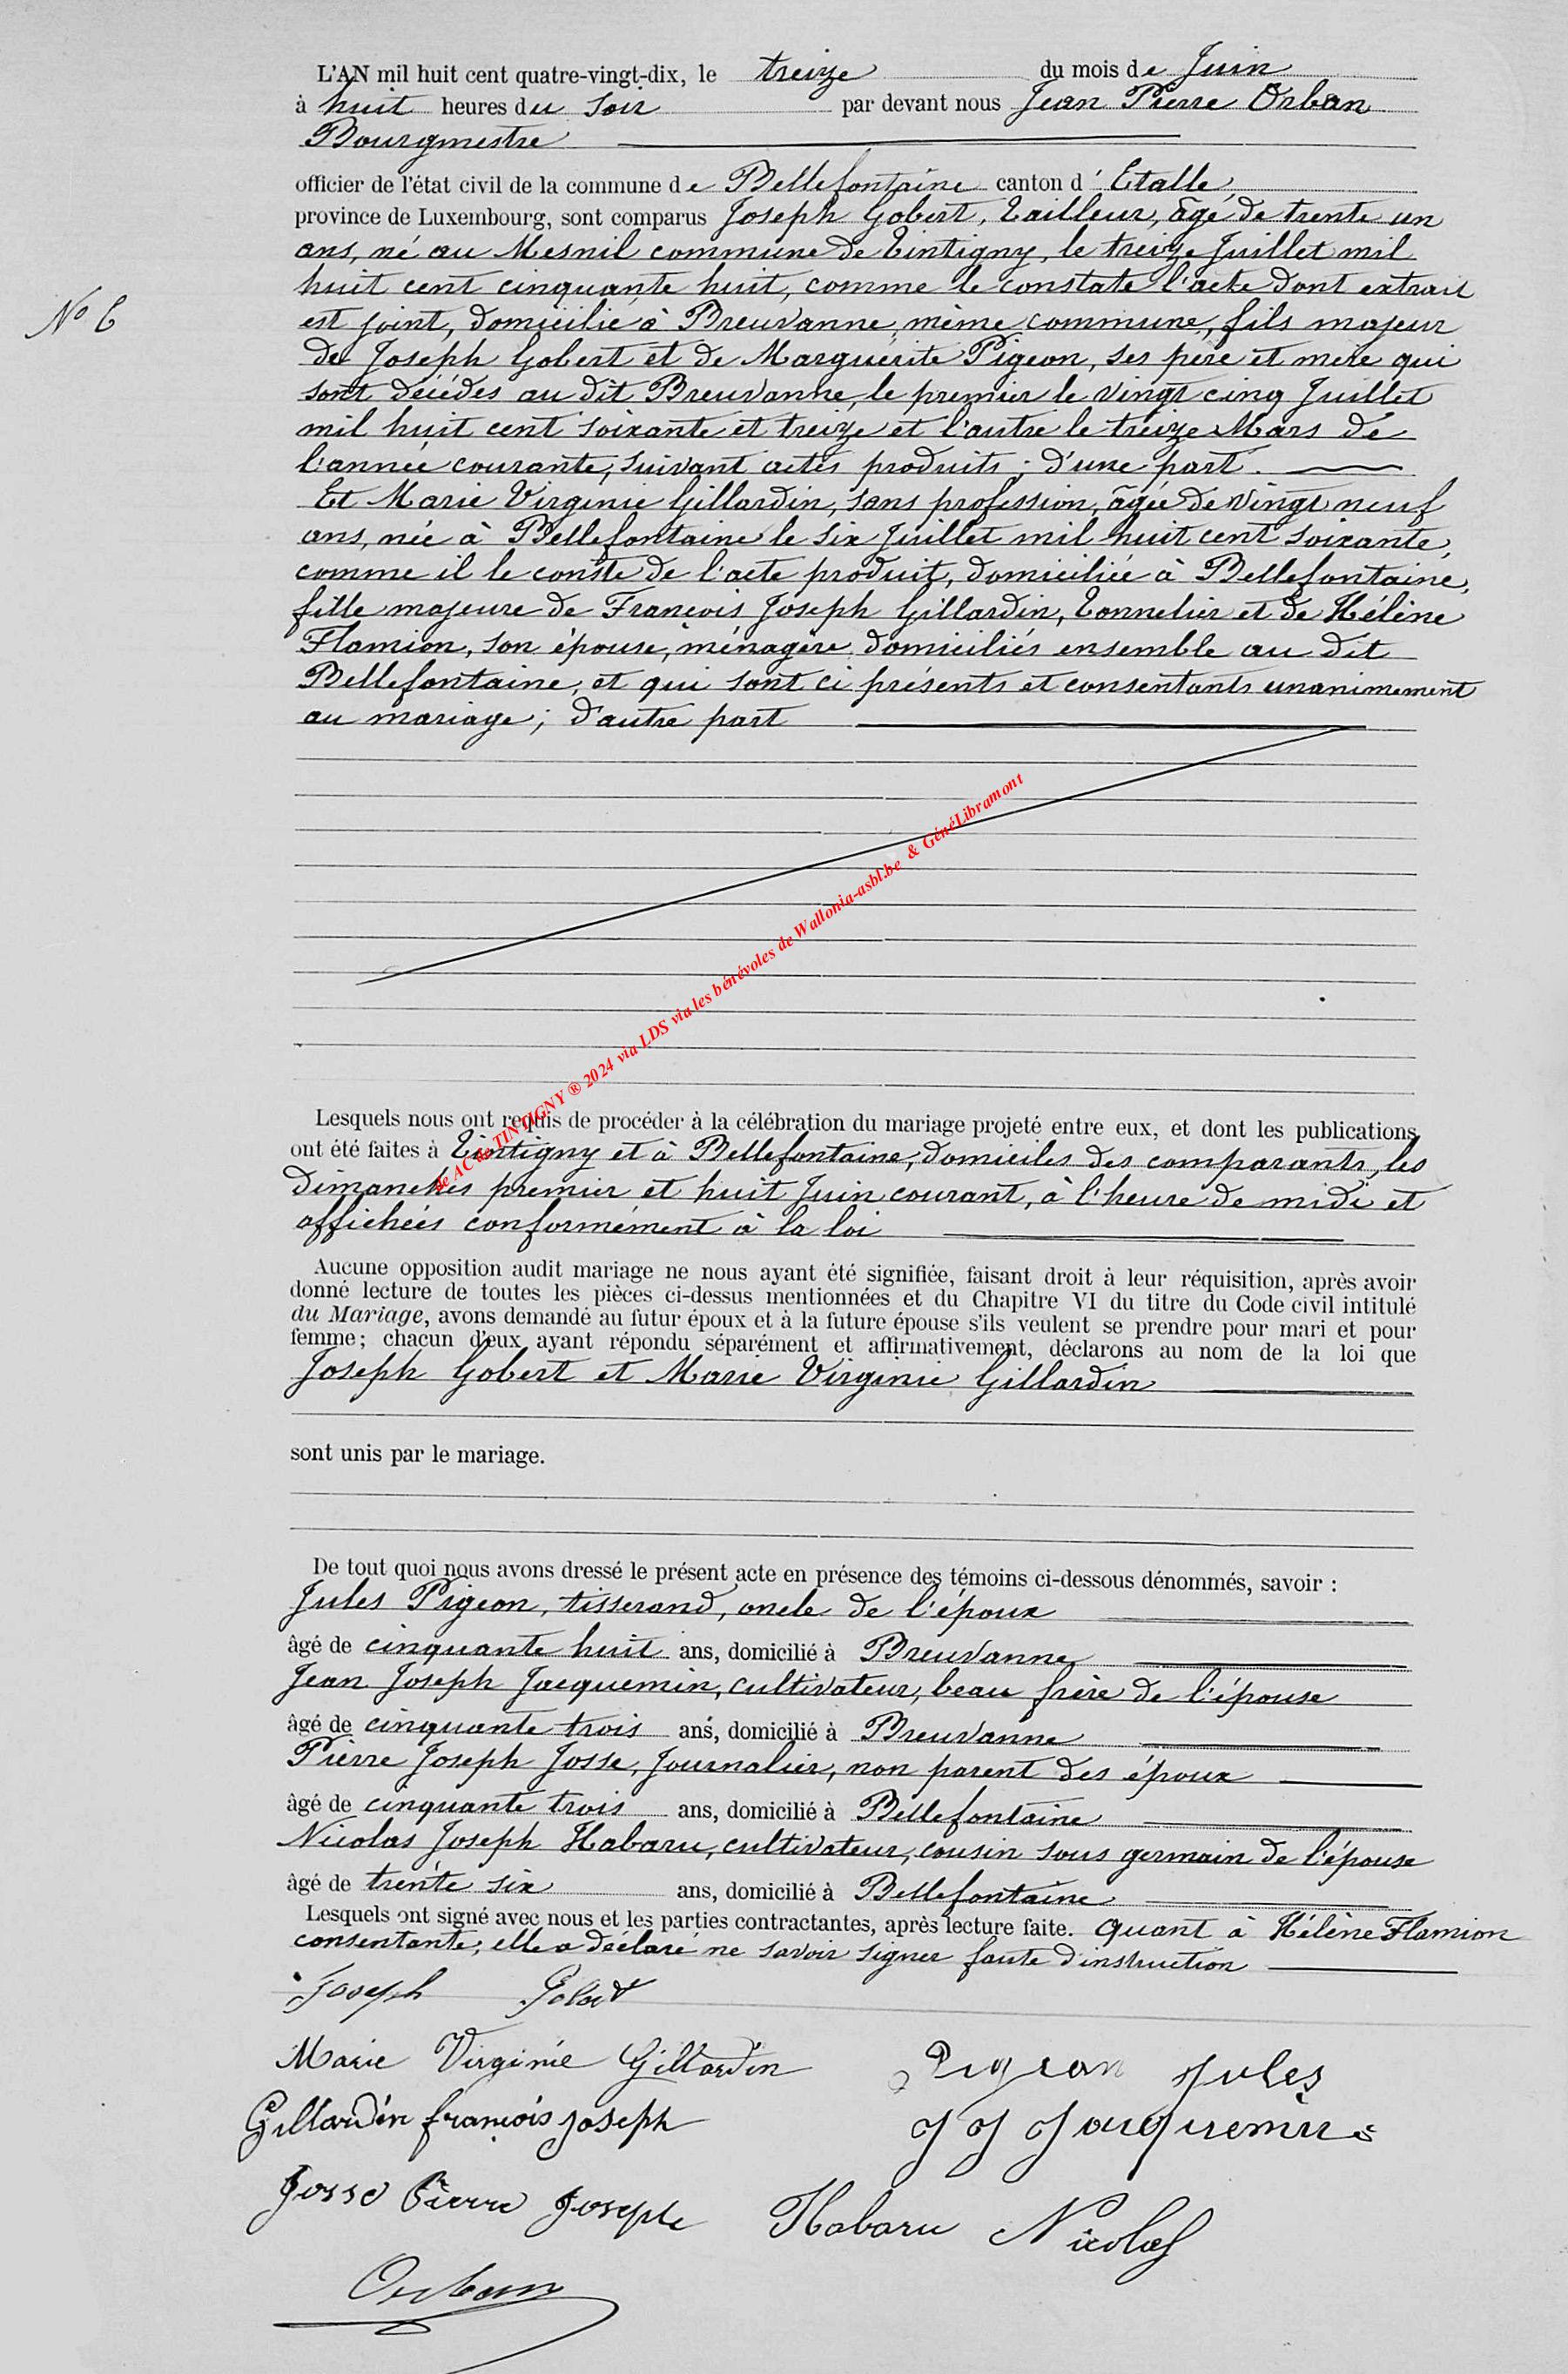 L'AN mil huit cent quatre-vingt-dix, le treize du mois de Juin
à huit heures du soir par devant nous Jean Pierre Orban
Bourgmestre
officier de l'état civil de la commune de Bellefontaine canton d' Etalle,
province de Luxembourg, sont comparus Joseph Gobert, Tailleur, âgé de trente un
ans, né au Mesnil commune de Tintigny, le treize Juillet mil
huit cent cinquante huit, comme le constate l'acte dont extrait
N° 6
est joint, domicilié à Breuvanne, même commune, fils majeur
de Joseph Gobert et de Marguérite Pigeon, ses père et mère qui
sont décédés au dit Breuvanne, le premier le vingt cinq Juillet
mil huit cent soixante et treize et l'autre le treize Mars de
l'année courante, suivant actes produits ; d'une part.
Et Marie Virginie Gillardin, sans profession, âgée de vingt neuf
ans, née à Bellefontaine le six Juillet mil huit cent soixante,
comme il le conste de l'acte produit, domiciliée à Bellefontaine,
fille majeure de François Joseph Gillardin, Tonnelier et de Hélène
Flamion, son épouse, ménagère domiciliés ensemble au dit
Bellefontaine, et qui sont ci présents et consentants unanimement
au mariage ; d'autre part
de AC de TINTIGNY ® 2024 via LDS via les bénévoles de Wallonia-asbl.be & GénéLibramont
Lesquels nous ont requis de procéder à la célébration du mariage projeté entre eux, et dont les publications
ont été faites à Tintigny et à Bellefontaine, domiciles des comparants, les
dimanches premier et huit Juin courant, à l'heure de midi et
affichées conformément à la loi
Aucune opposition audit mariage ne nous ayant été signifiée, faisant droit à leur réquisition, après avoir
donné lecture de toutes les pièces ci-dessus mentionnées et du Chapitre VI du titre du Code civil intitulé
du Mariage, avons demandé au futur époux et à la future épouse s'ils veulent se prendre pour mari et pour
femme ; chacun d'eux ayant répondu séparément et affirmativement, déclarons au nom de la loi que
Joseph Gobert et Marie Virginie Gillardin
sont unis par le mariage.
De tout quoi nous avons dressé le présent acte en présence des témoins ci-dessous dénommés, savoir :
Jules Pigeon, tisserand, oncle de l'époux
âgé de cinquante huit ans, domicilié à Breuvanne
Jean Joseph Jacquemin, cultivateur, beau frère de l'épouse
âgé de cinquante trois ans, domicilié à Breuvanne
Pierre Joseph Josse, Journalier, non parent des époux
âgé de cinquante trois ans, domicilié à Bellefontaine
Nicolas Joseph Habaru, cultivateur, cousin sous germain de l'épouse
âgé de trente six ans, domicilié à Bellefontaine
Lesquels ont signé avec nous et les parties contractantes, après lecture faite. quant à Hélène Flamion
consentante, elle a déclaré ne savoir signer faute d'instruction
Joseph Gobert
Marie Virginie Gillardin Pigeon Jules
Gillardin françois joseph J J Jacquemin
Josse Pierre Joseph Habaru Nicolas
Orban